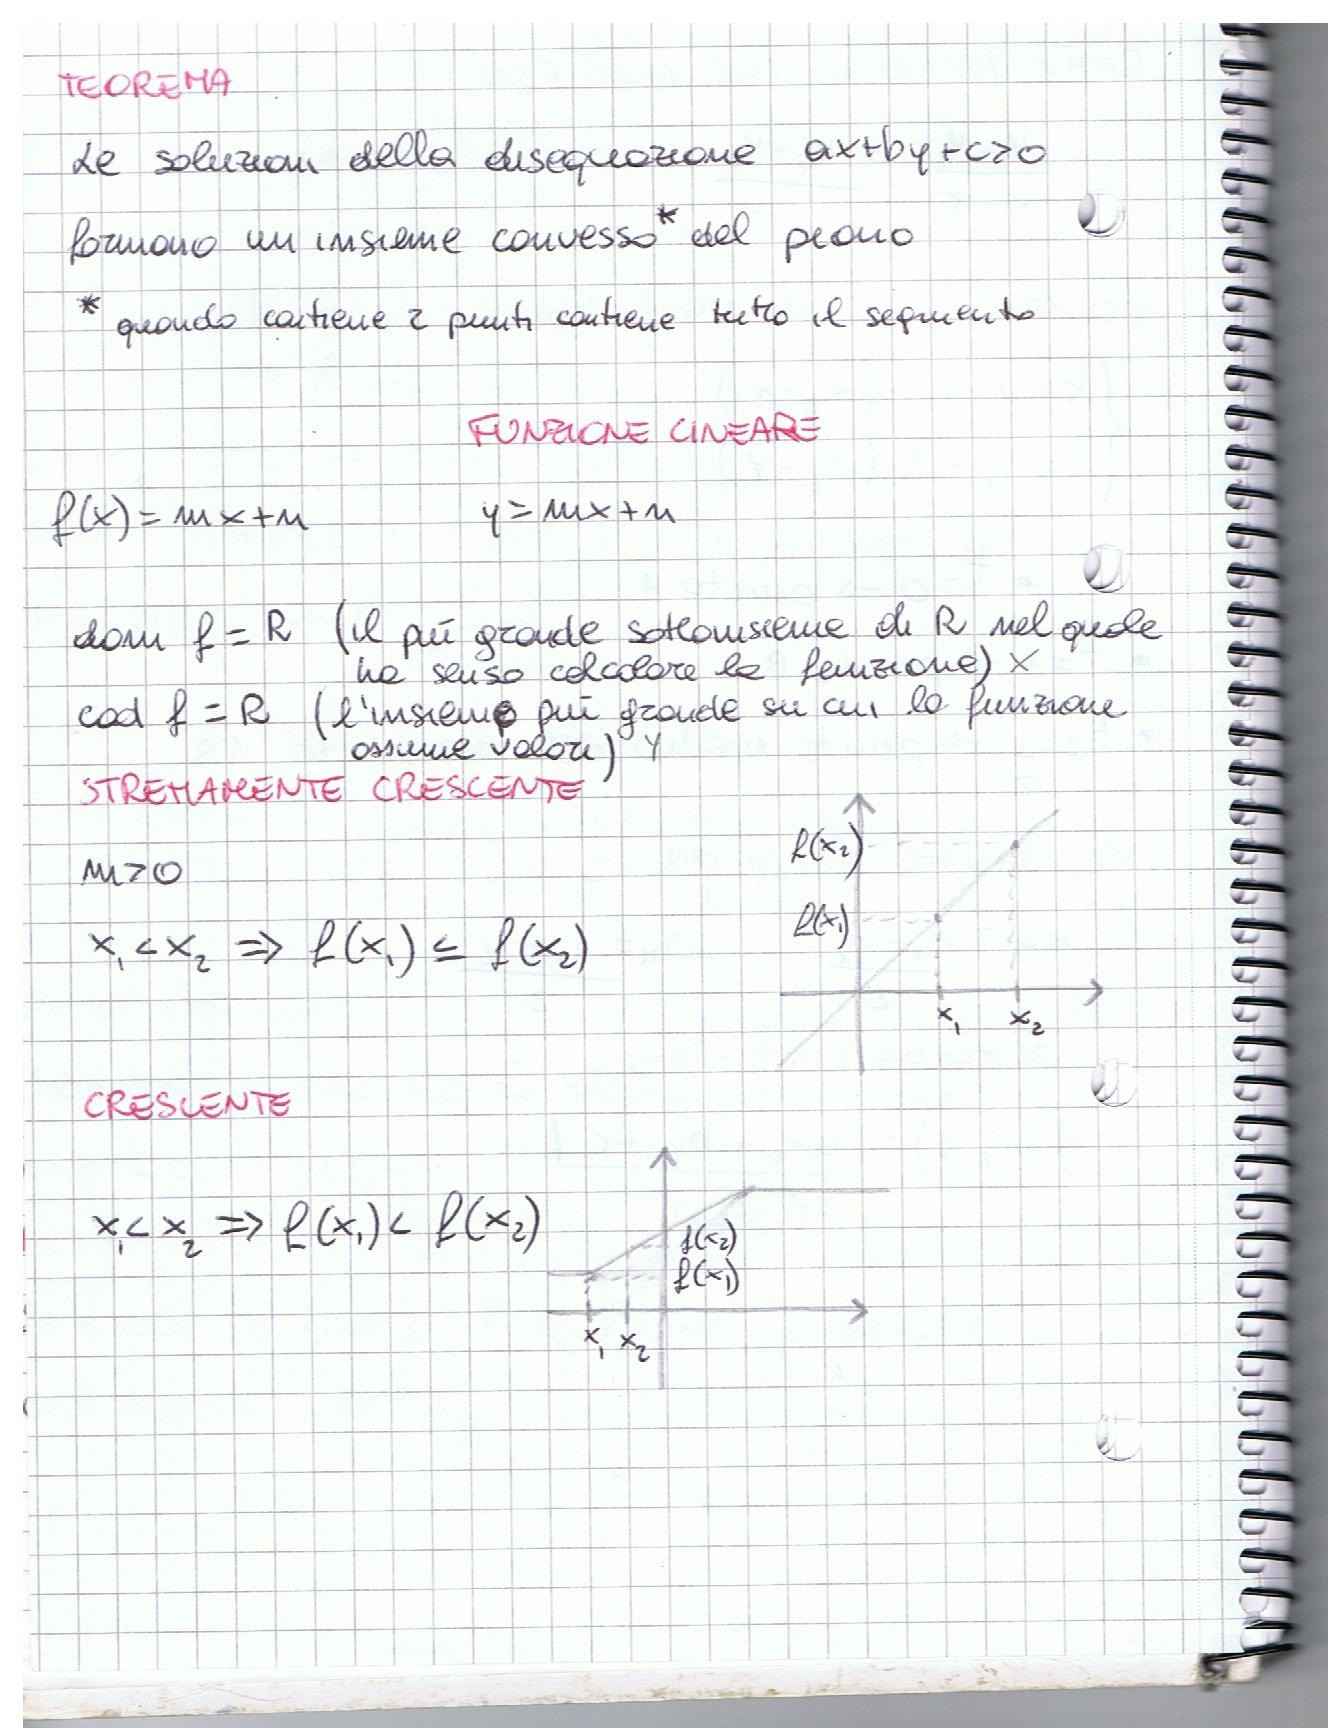 TEOREMA
Le soluzioni della disequazione ax+by+c>0
formano un insieme convesso* del piano
* quando contiene 2 punti contiene tutto il segmento
FUNZIONE LINEARE
f(x)=mx+n y=mx+n
dom f=R (il più grande sottoinsieme di R nel quale
ha senso calcolare la funzione) X
cod f=R (l'insieme più grande su cui la funzione
assume valori) Y
STREMAMENTE CRESCENTE
m>0
f(x₂)
f(x₁)
x₁<x₂ ⇒ f(x₁) ≤ f(x₂)
x₁ x₂
CRESCENTE
x₁<x₂ ⇒ f(x₁)< f(x₂)
f(x₂)
f(x₁)
x₁ x₂